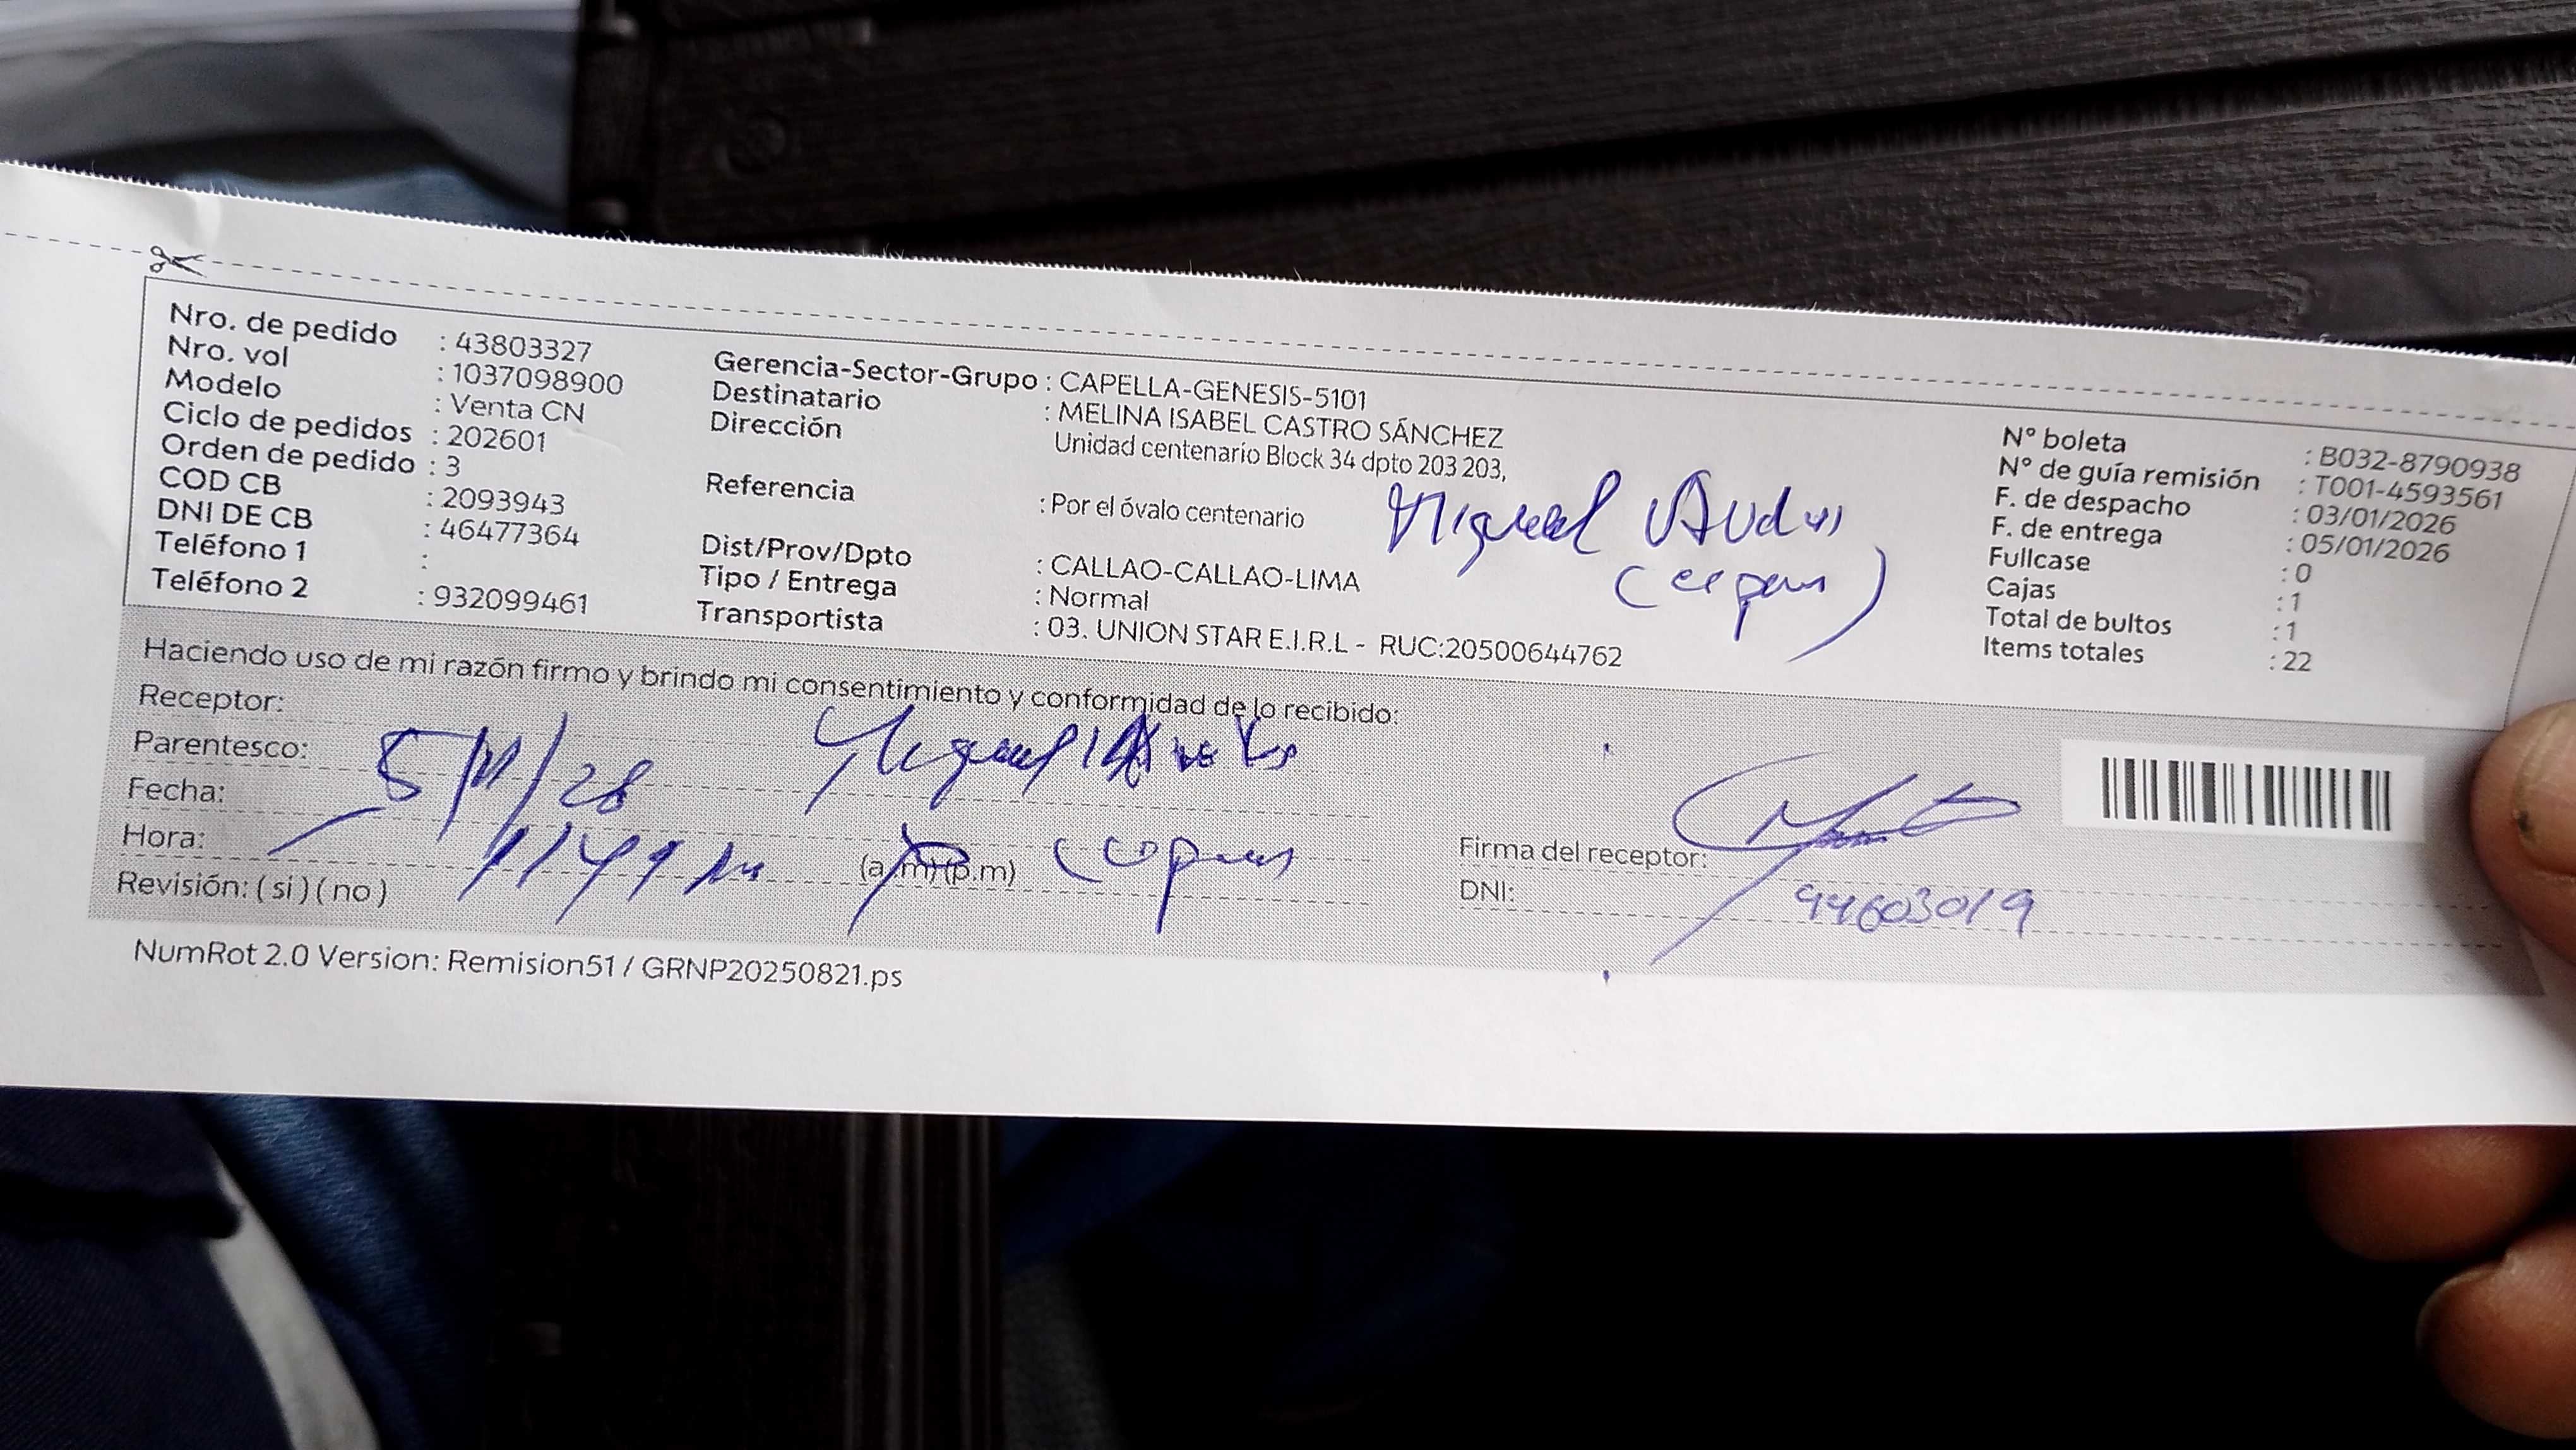 Nro. de pedido : 43803327
Nro. vol : 1037098900
Modelo : Venta CN
Ciclo de pedidos : 202601
Orden de pedido : 3
COD CB : 2093943
DNI DE CB : 46477364
Teléfono 1 :
Teléfono 2 : 932099461
Gerencia-Sector-Grupo : CAPELLA-GENESIS-5101
Destinatario : MELINA ISABEL CASTRO SÁNCHEZ
Dirección Unidad centenario Block 34 dpto 203 203,
Referencia : Por el óvalo centenario
Dist/Prov/Dpto : CALLAO-CALLAO-LIMA
Tipo / Entrega : Normal
Transportista : 03. UNION STAR E.I.R.L - RUC:20500644762
Miguel
N° boleta : B032-8790938
N° de guía remisión : T001-4593561
F. de despacho : 03/01/2026
F. de entrega : 05/01/2026
Fullcase : 0
Cajas : 1
Total de bultos : 1
Items totales : 22
Haciendo uso de mi razón firmo y brindo mi consentimiento y conformidad de lo recibido:
Receptor: Miguel
Parentesco:
Fecha:
Hora: (a.m)(p.m)
Revisión: ( si ) ( no )
Firma del receptor:
DNI: 44603019
NumRot 2.0 Version: Remision51 / GRNP20250821.ps